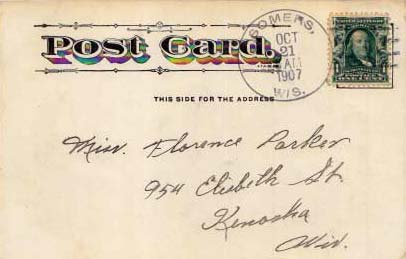 Post Card.
SOMERS,
OCT
21
AM
1907
WIS.
THIS SIDE FOR THE ADDRESS
Miss. Florence Parker
954 Elizbeth St.
Kenosha
Wis.